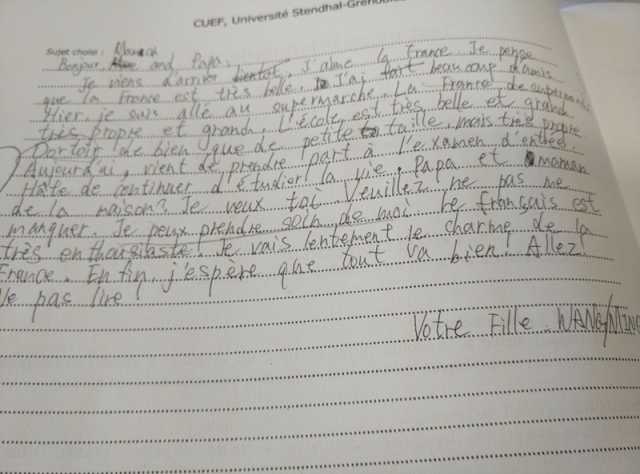 CUEF, Université Stendhal-Grenoble
Sujet choisi : Maman
Bonjour and Papa.
Je viens d'arriver J'aime la France Je pense
que la France est très belle. J'ai beaucoup d'amis
Hier, je suis allé au supermarché. La France, de supermarché
très propre et grand, L'école est très belle et grand
Dortoir de bien que de petite taille, mais très propre
Aujourd'ui, vient de prendre part à l'examen d'entrée.
Hâte de continuer d'étudier la vie, Papa et maman
de la maison? Je veux toi Veuillez ne pas me
manquer. Je peux prendre soin de moi Le français est
très enthousiaste! Je vais lentement le charme de la
France. Enfin, j'espère que tout va bien! Allez!
Ne pas lire!
Votre Fille. WANG NING